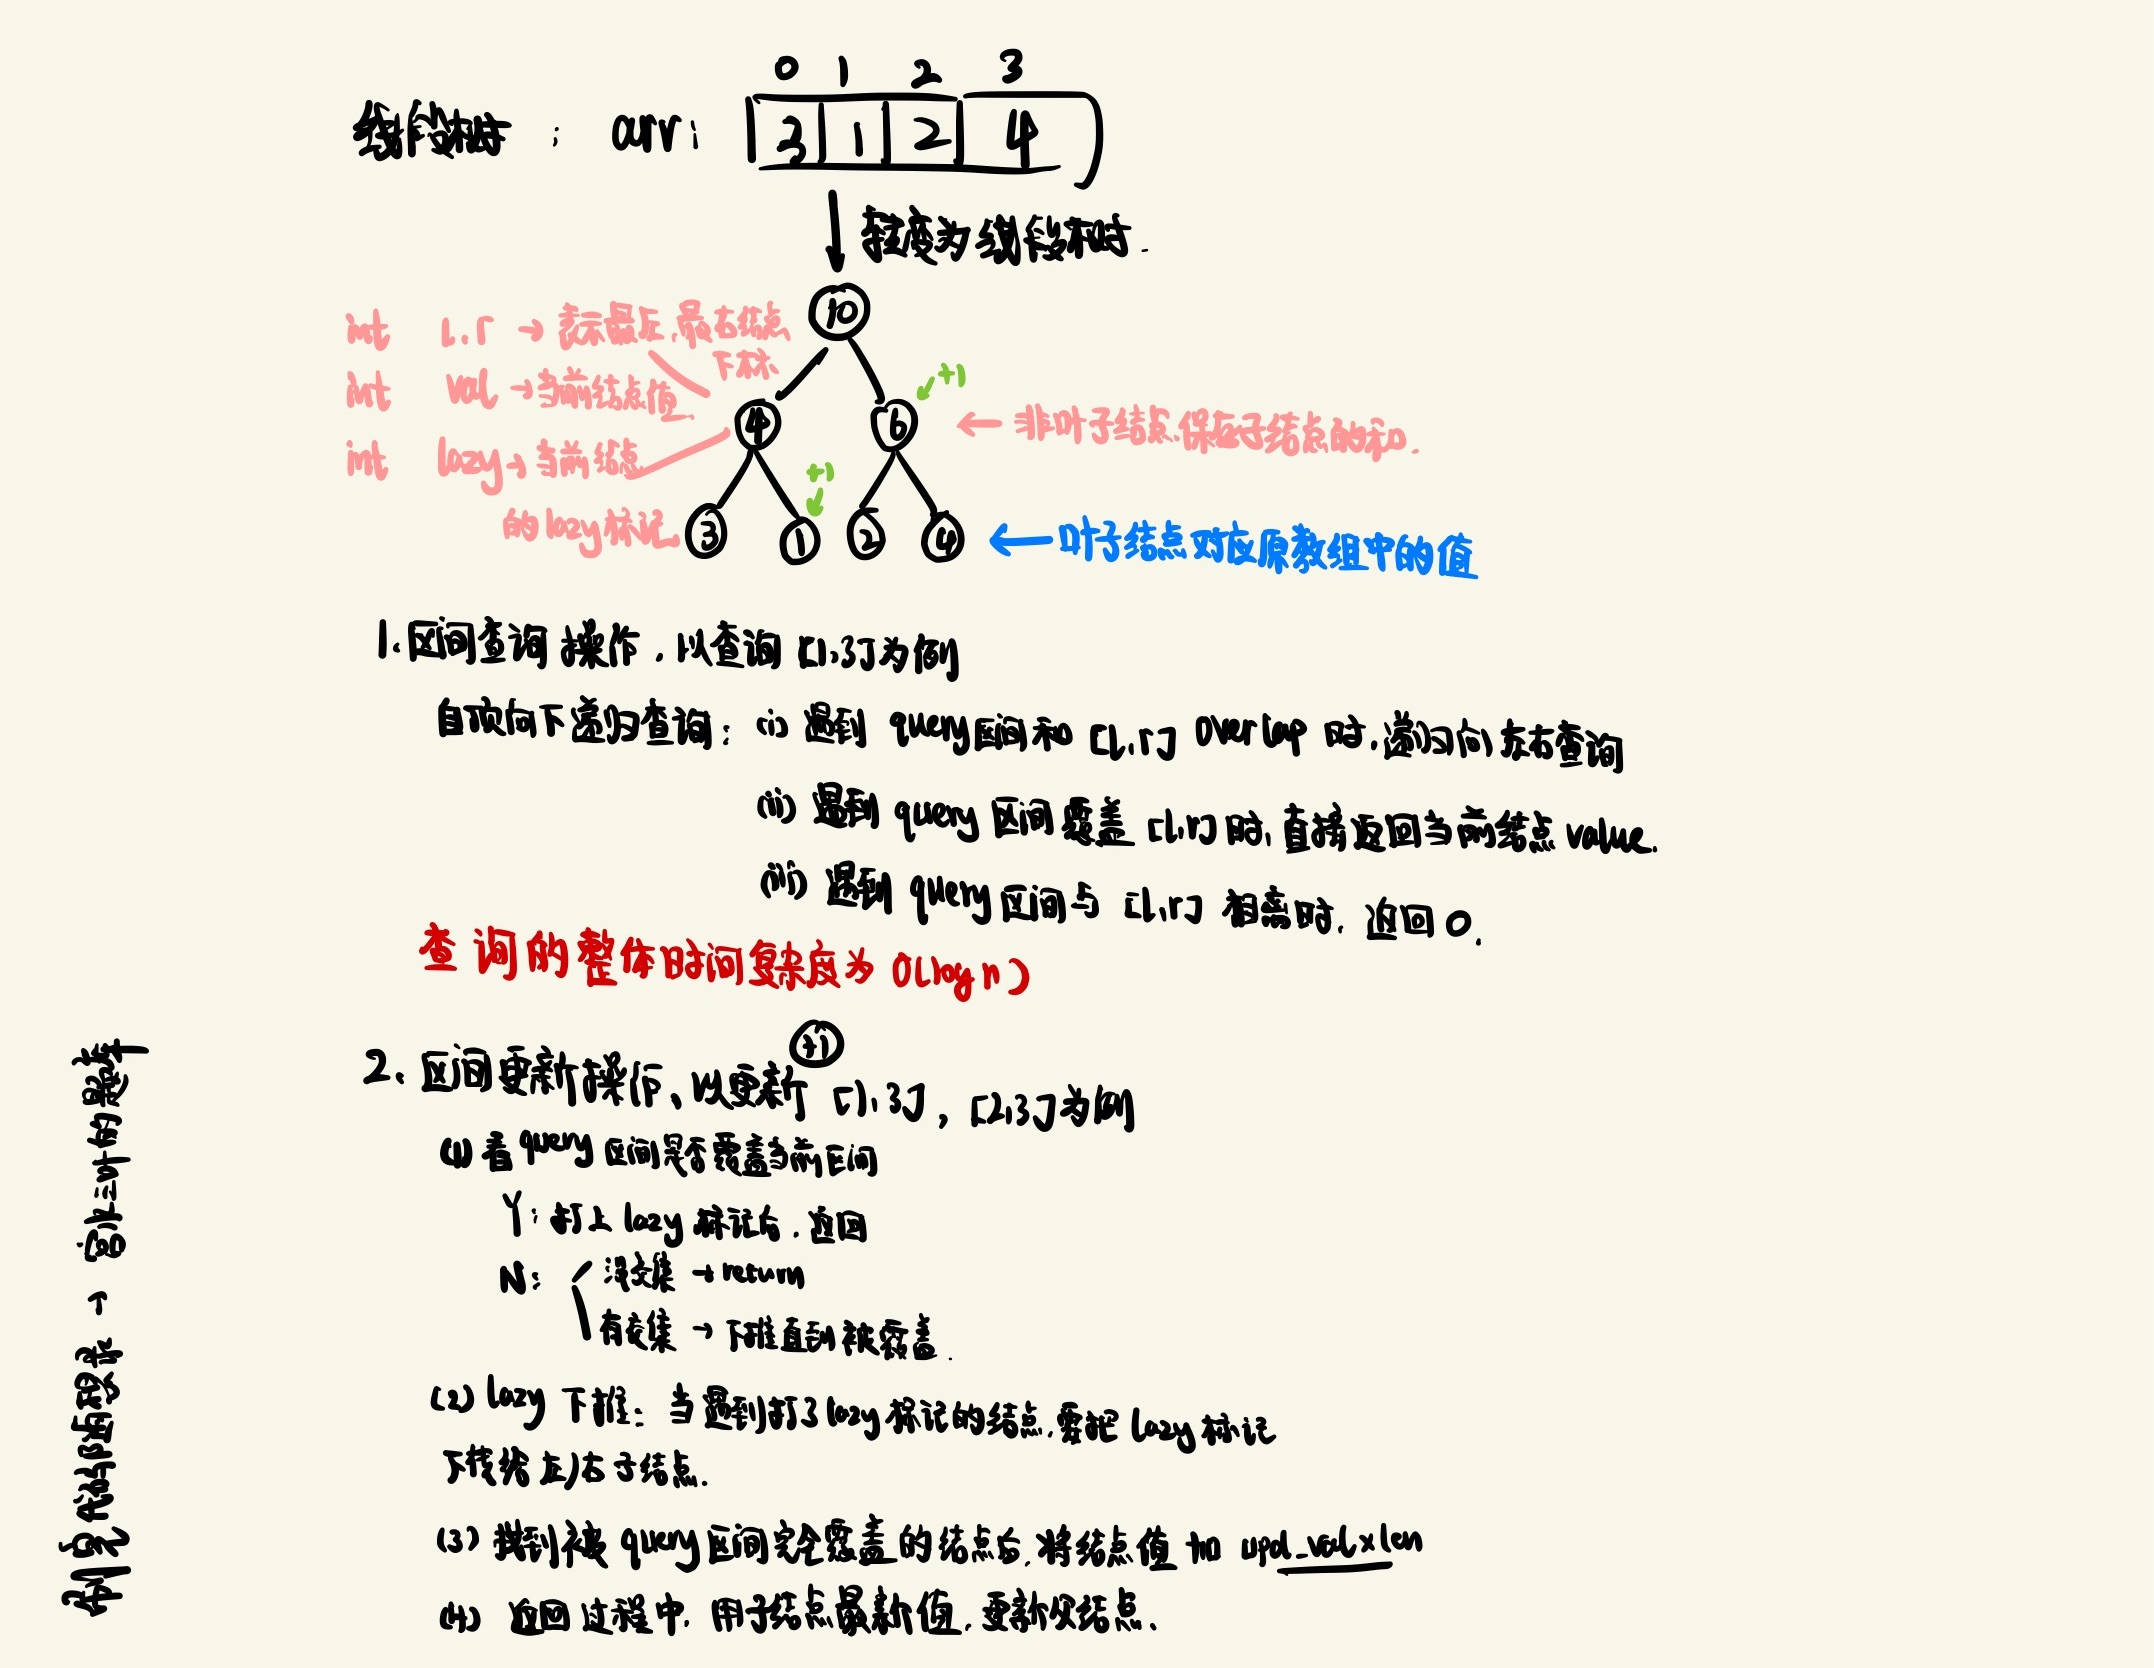 0 1 2 3
线段树: arr: 3 1 2 4
转变为线段树.
10
int l,r → 表示最左,最右结点
下标
+1
int val → 当前结点值
4 6
← 非叶子结点,保存子结点的和.
int lazy → 当前结点
的lazy标记
+1
3 1 2 4
← 叶子结点对应原数组中的值
1. 区间查询操作,以查询[1,3]为例
自顶向下递归查询: (i) 遇到 query区间和 [l,r] overlap 时,递归向左右查询
(ii) 遇到 query 区间覆盖 [l,r] 时,直接返回当前结点 value.
(iii) 遇到 query 区间与 [l,r] 相离时,返回0.
查询的整体时间复杂度为 O(log n)
+1
2. 区间更新操作、以更新 [1,3], [2,3]为例
(1) 看query 区间是否覆盖当前区间
Y: 打上 lazy 标记后,返回
N: 没交集 → return
有交集 → 下推直到被覆盖.
(2) lazy 下推: 当遇到打了lazy标记的结点,要把 lazy 标记
下传给左/右子结点.
(3) 找到被 query 区间完全覆盖的结点后,将结点值 加 upd_val×len
(4) 返回过程中,用子结点最新值,更新父结点.
代码随想录 → 三叶的题